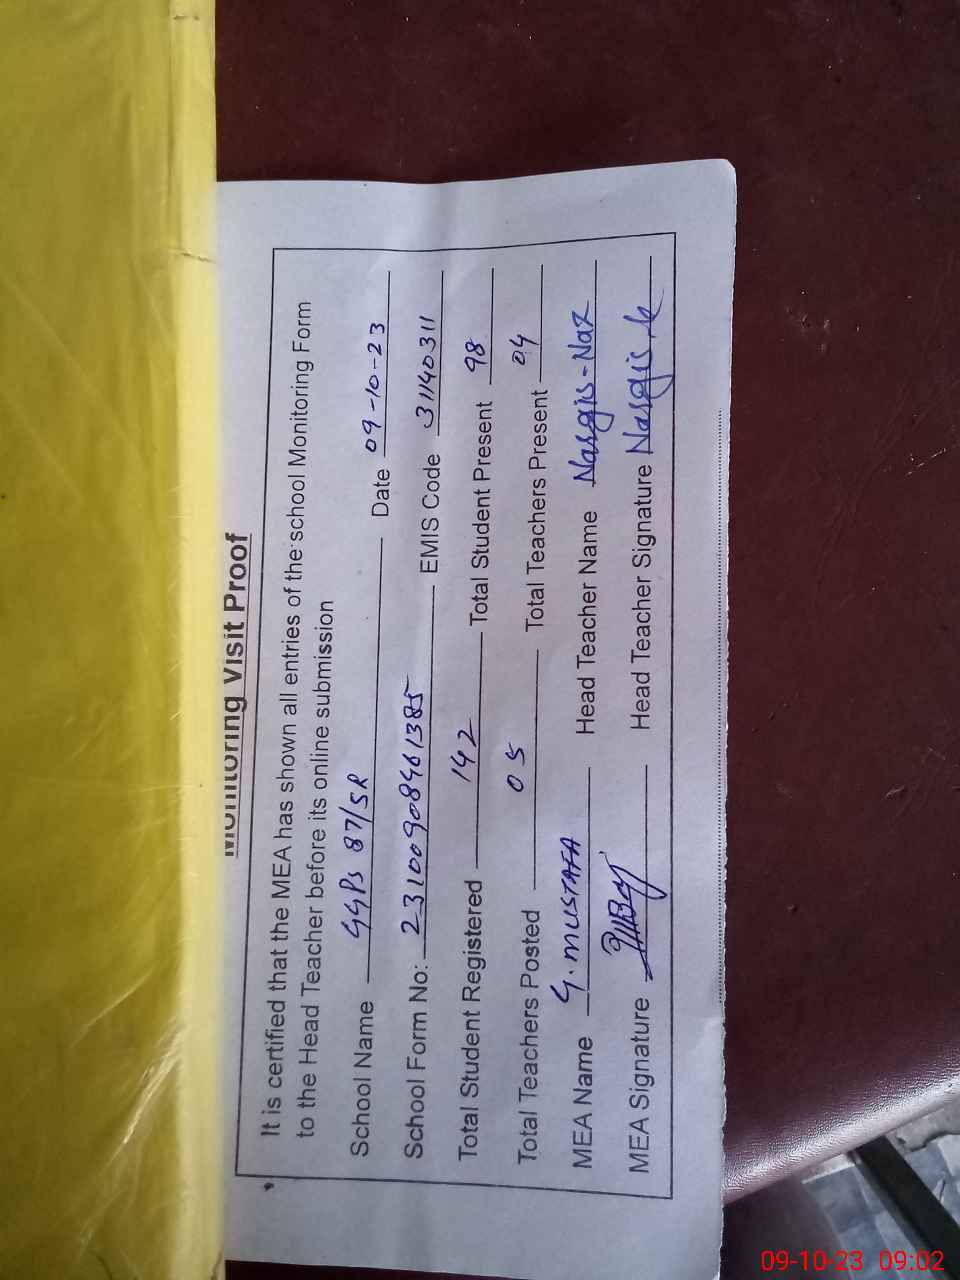 Monitoring Visit Proof
It is certified that the MEA has shown all entries of the school Monitoring Form
to the Head Teacher before its online submission
School Name GGPS 87/5R Date 09-10-23
School Form No: 23100908461385 EMIS Code 31140311
Total Student Registered 142 Total Student Present 98
Total Teachers Posted 05 Total Teachers Present 04
MEA Name G. MUSTAFA Head Teacher Name Nasgis-Naz
MEA Signature Head Teacher Signature Nasgis
09-10-23 09:02